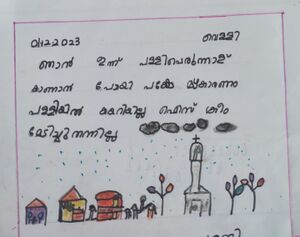 01122023 വെള്ളി
ഞാൻ ഇന്ന് പള്ളിപെരുന്നാള്
കാണാൻ പോയി പക്ഷേ
പള്ളിയിൽ കയറിയില്ല ഐസ് ക്രീം
മേടിച്ചു തന്നില്ല